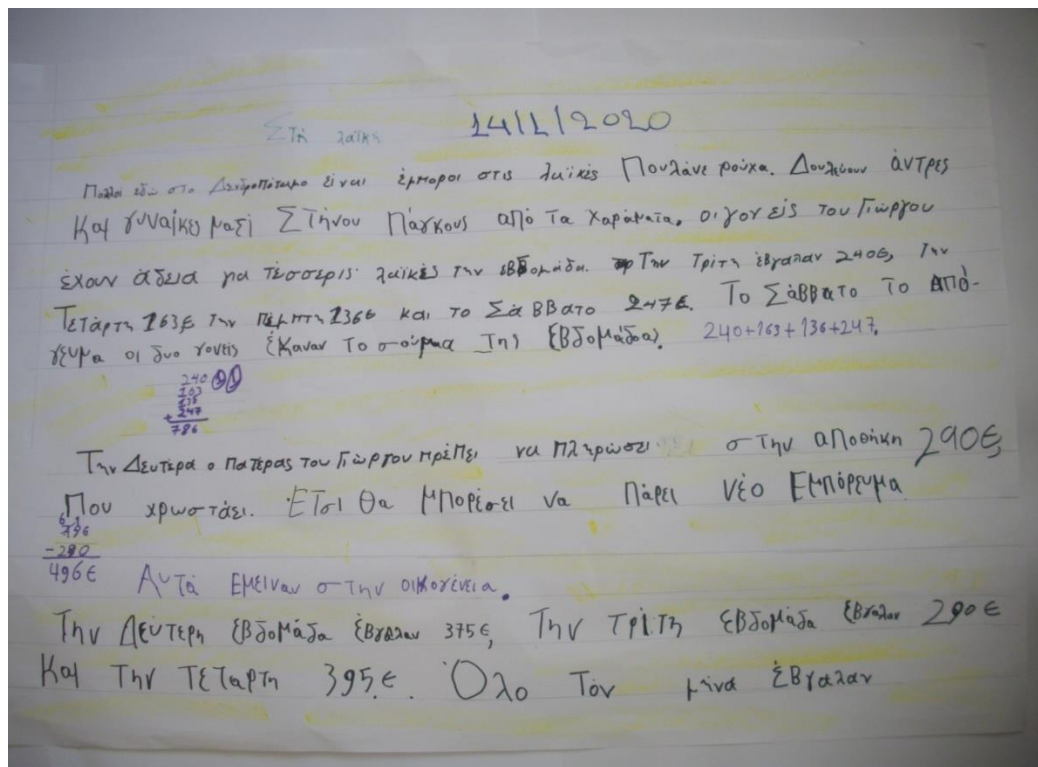 Στη λαϊκή 14/1/2020
Πολλοί εδώ στο Δενδροπόταμο είναι έμποροι στις λαϊκές Πουλάνε ρούχα. Δουλεύουν άντρες
Και γυναίκες μαζί Στήνου Πάγκους από Τα χαράματα. οι γονείς του Γιώργου
έχουν άδεια για τέσσερις λαϊκές την εβδομάδα. Την Τρίτη έβγαλαν 240€, Την
Τετάρτη 163€ Την πέμπτη 136€ και το ΣάββατΟ 247€. Το Σάββατο το Από-
γευμα οι δυο γονείς έκαναν Το σούμα Της Εβδομάδας. 240+163+136+247.
240
163
136
+ 247
786
Την Δευτέρα ο πατέρας του Γιώργου πρέπει να πληρώσει στην αποθήκη 290€,
Που χρωστάει. Έτσι θα μπορέσει να πάρει νέο Εμπόρευμα
6 1
786
-290
496€ Αυτά Εμειναν στην οικογένεια.
Την Δεύτερη Εβδομάδα έβγαλαν 375€, Την Τρίτη εβδομάδα έβγαλαν 290€
Και Την Τέταρτη 395.€. Όλο Τον μήνα έβγαλαν